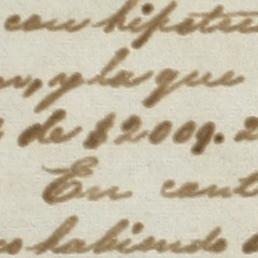 con hipotec
y la que
de $2009. 2
En cont
habiendo